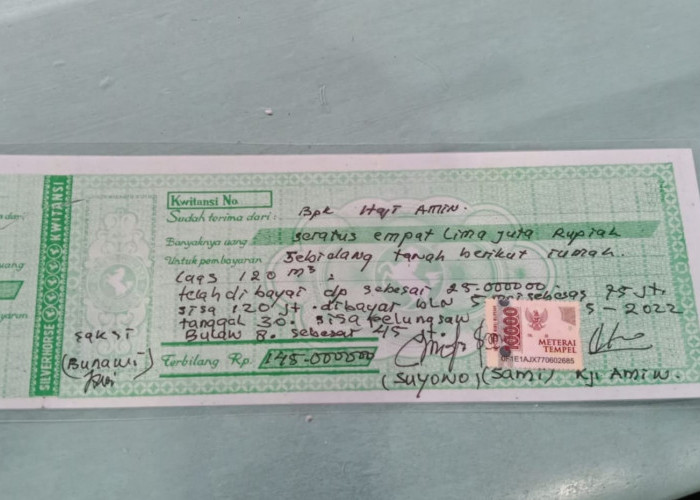 SILVERHORSE KWITANSI
Kwitansi No
Sudah terima dari: Bpk Haji AMIN.
Banyaknya uang seratus empat Lima juta Rupiah
Untuk pembayaran Sebidang tanah berikut rumah.
Luas 120 m³.
telah di bayar dp sebesar 25.000000
sisa 120 jt. dibayar BLN 5 sebesar 75 jt.
tanggal 30. sisa pelunasan 5-2022
Bulan 8. sebesar 45 jt.
Terbilang Rp. 145.000000
saksi
(Bunawi)
METERAI
TEMPEL
0F1E1AJX770602685
(SUYONO) (Sami) KJI AMIN.